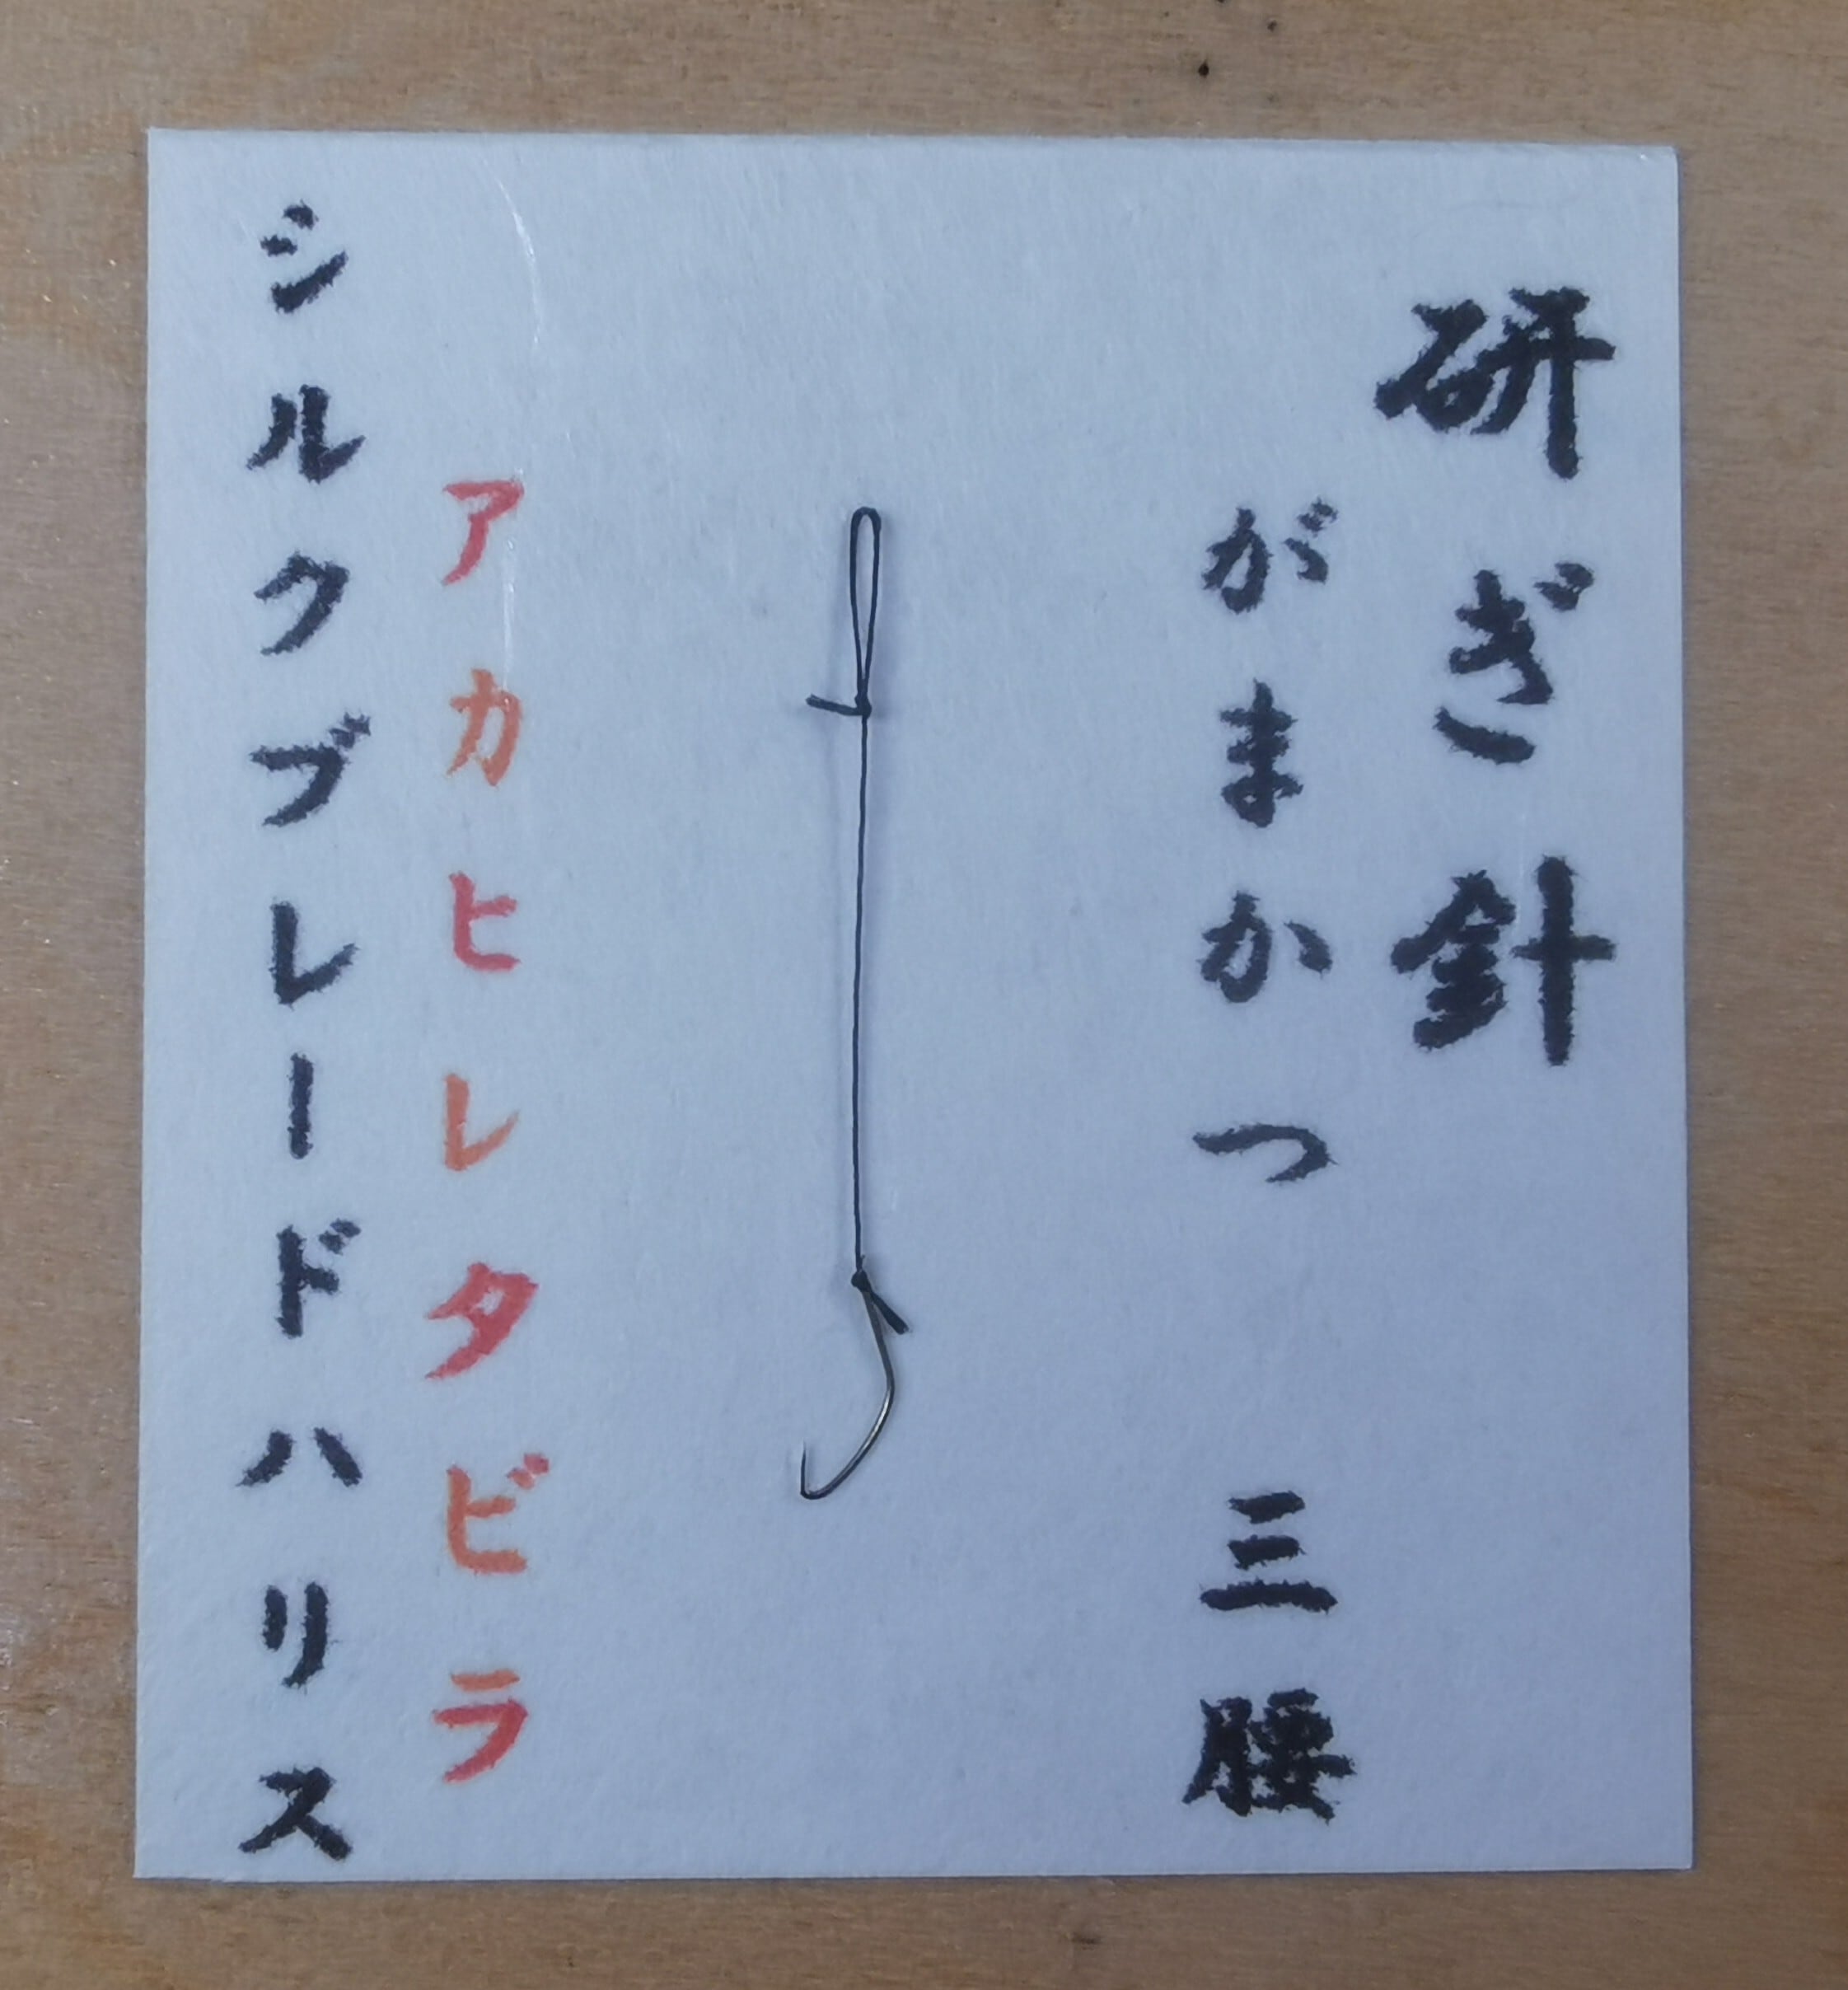 研ぎ針
がまかつ 三腰
アカヒレタビラ
シルクブレードハリス